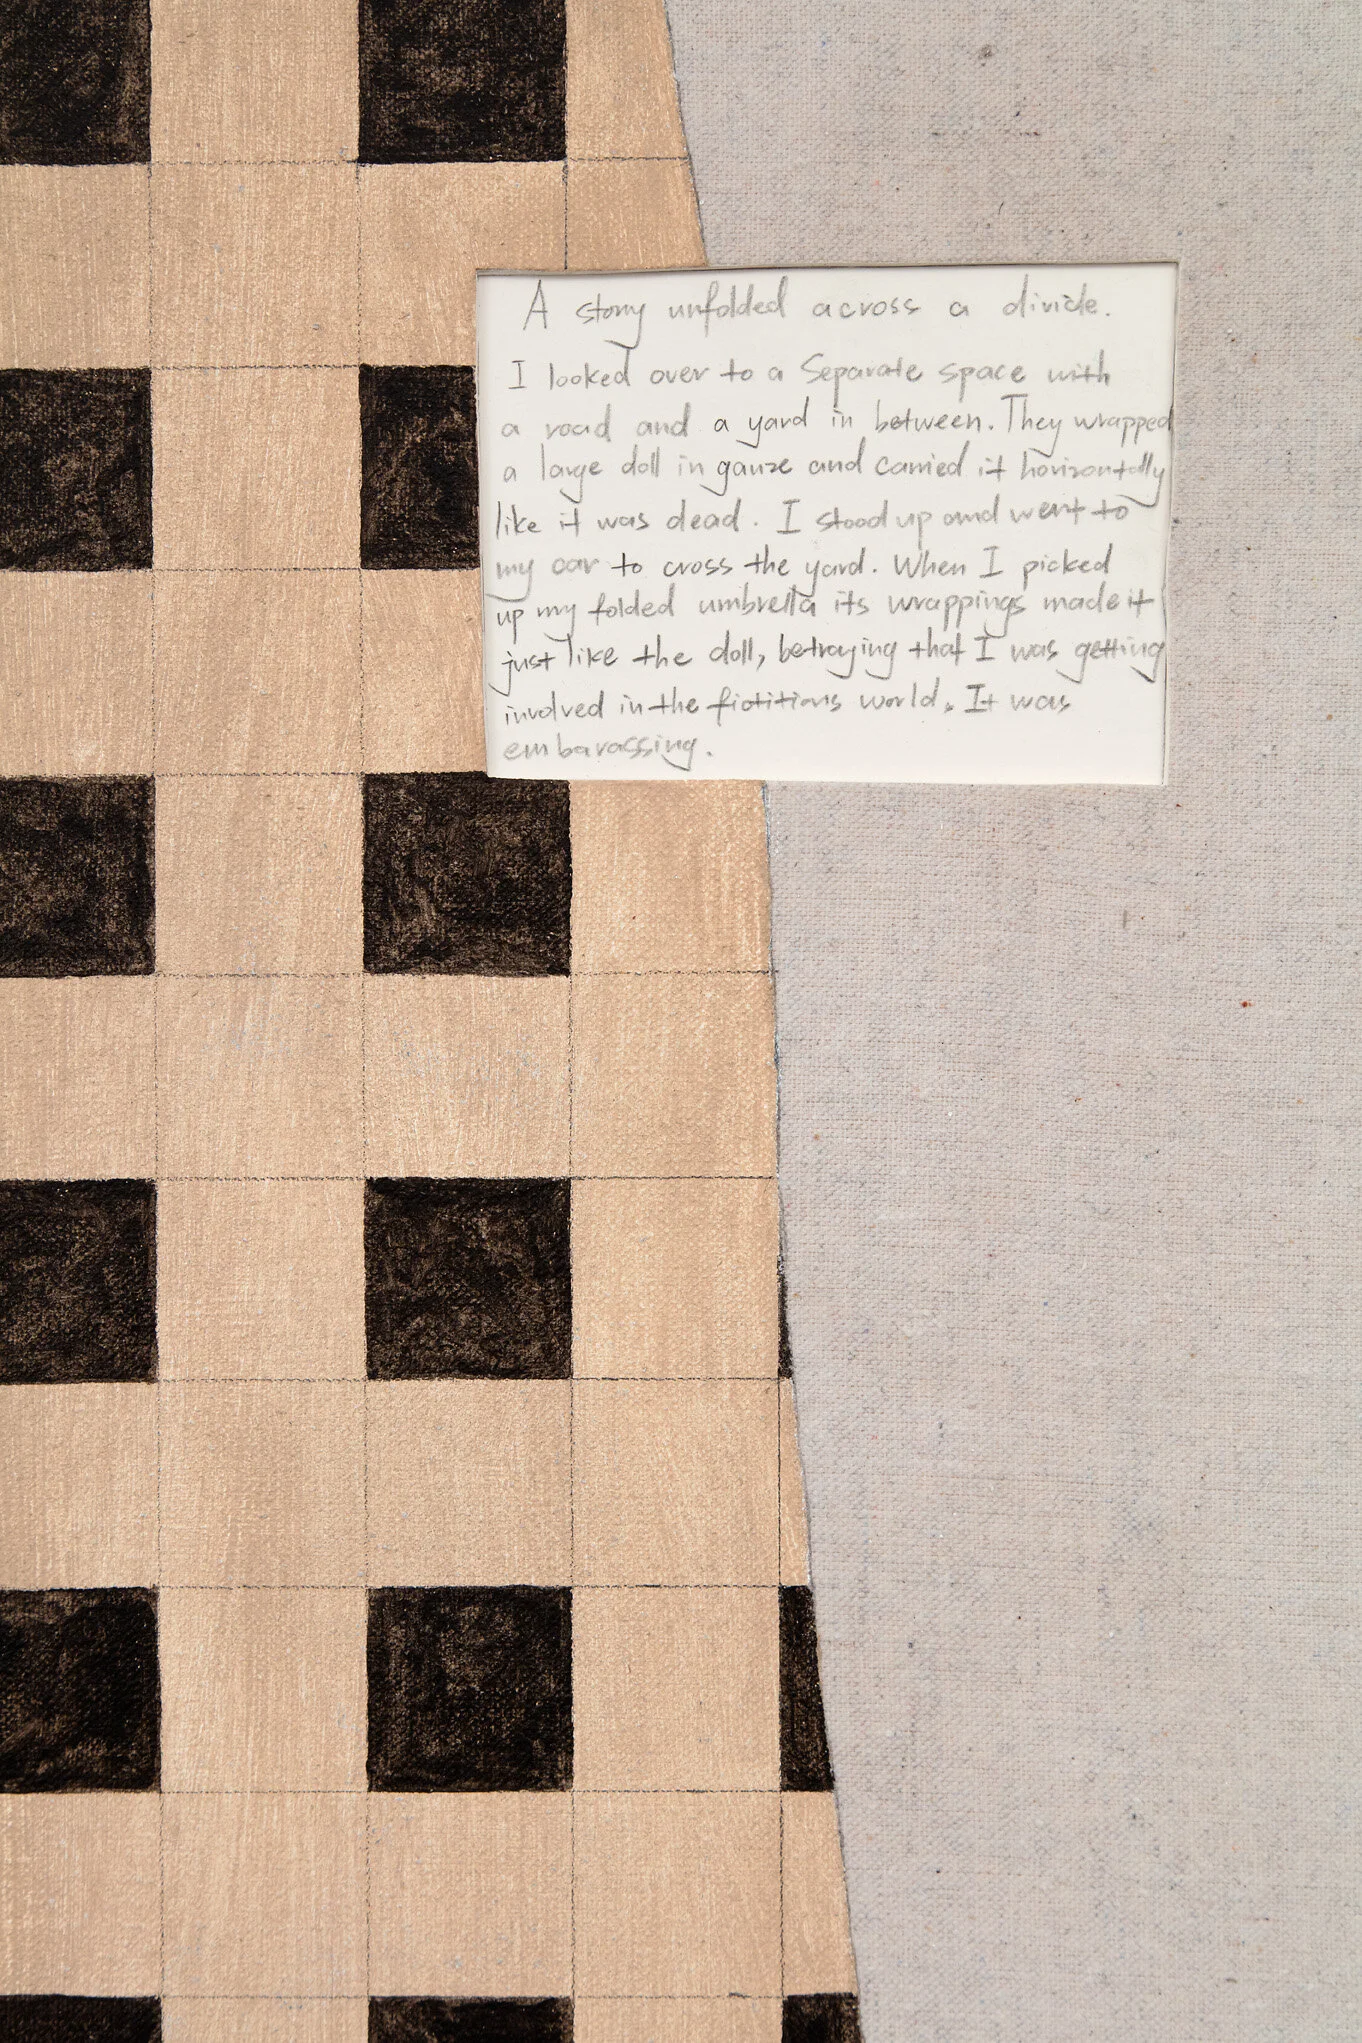 A story unfolded across a divide.
I looked over to a separate space with
a road and a yard in between. They wrapped
a large doll in gauze and carried it horizontally
like it was dead. I stood up and went to
my car to cross the yard. When I picked
up my folded umbrella its wrappings made it
just like the doll, betraying that I was getting
involved in the fictitious world. It was
embarassing.